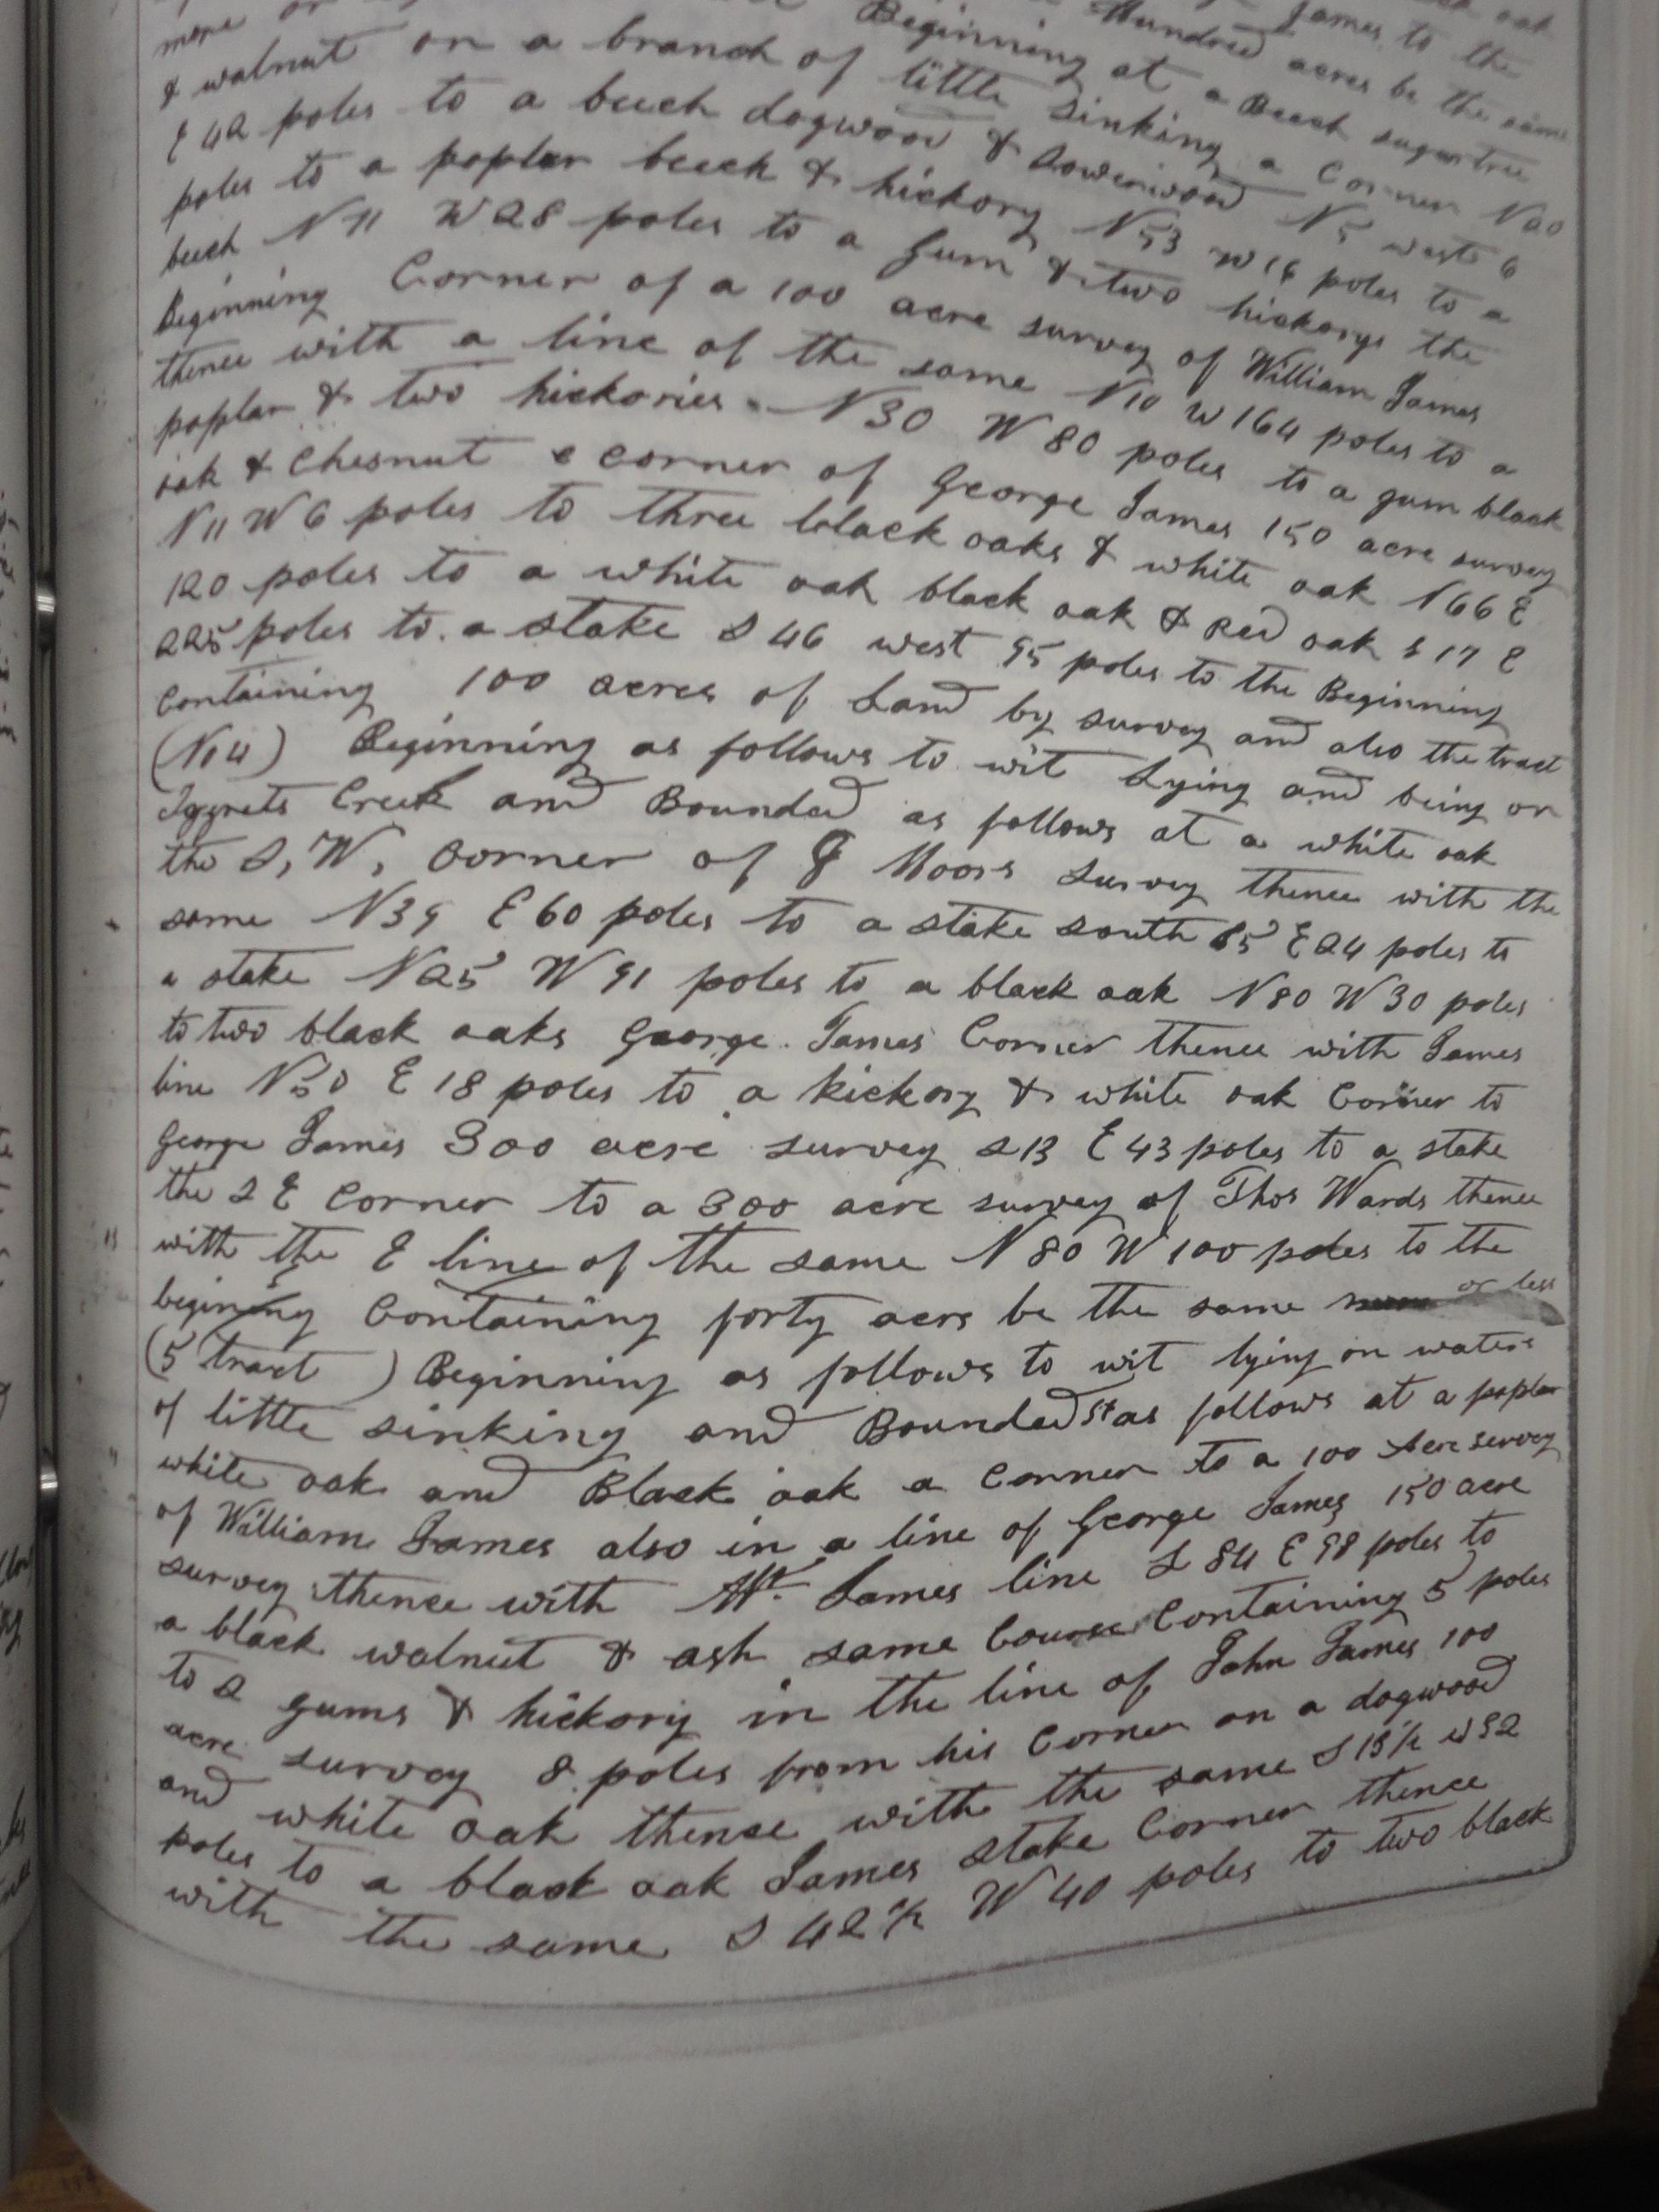 James to the
more Hundred acres be the same
& walnut on a branch of little Beginning at a Beech sugartree
E 42 poles to a beech dogwood & sinking a Corner N20
poles to a poplar beech & hickory Sowerwood N5 west 6
beech N11 W28 poles to a Gum N53 W16 poles to a
Beginning Corner of a 100 acre survey & two hickorys the
thence with a line of the same of William James
poplar & two hickories N30 N10 W164 poles to a
oak & Chesnut a corner of W80 poles to a gum black
N11 W6 poles to three black George James 150 acre survey
120 poles to a white oak black oaks & white oak N66 E
225 poles to a stake S46 west 95 oak & Red oak S17 E
Containing 100 acres of Land by poles to the Beginning
(No4) Beginning as follows to wit survey and also the tract
Creek and Bounded as Lying and being on
the S, W, Corner of follows at a white oak
same N39 E60 poles to a survey thence with the
a stake N25 W91 stake south 85 E24 poles to
to two black oaks poles to a black oak N80 W30 poles
line N50 E18 George James Corner thence with James
George James poles to a hickory & white oak Corner to
300 acre survey S13 E43 poles to a stake
the S E Corner to a 300 acre survey of Thos Wards thence
with the E line of the same N80 W100 poles to the
begining Containing forty acrs be the same more or less
(5 tract) Beginning as follows to wit lying on waters
of little sinking and Bounded as follows at a poplar
white oak and Black oak a Corner to a 100 Acre survey
of William James also in a line of George James 150 acre
survey thence with Wm James line S84 E98 poles to
a black walnut & ash same Course Containing 5 poles
to 2 gums & hickory in the line of John James 100
acre survey 8 poles from his Corner on a dogwood
and white oak thence with the same S 13½ W52
poles to a black oak James stake Corner thence
with the same S 42½ W 40 poles to two black